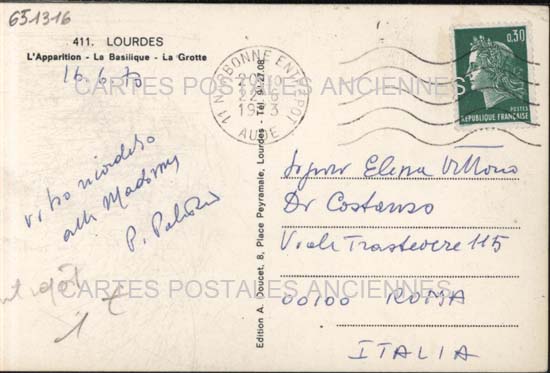 651316
411. LOURDES
L'Apparition - La Basilique - La Grotte
16.6.73
vi ho ricordato
alla Madonna
P.
1 €
Edition A. Doucet, 8, Place Peyramale, Lourdes - Tél. 94.27.08
11 NARBONNE ENTREPOT
1973
AUDE
0,30
POSTES
REPUBLIQUE FRANÇAISE
Signora Elena Vittoria
Dr Costanzo
Viale Trastevere 115
00100 ROMA
ITALIA
CARTES POSTALES ANCIENNES
CARTES POSTALES ANCIENNES